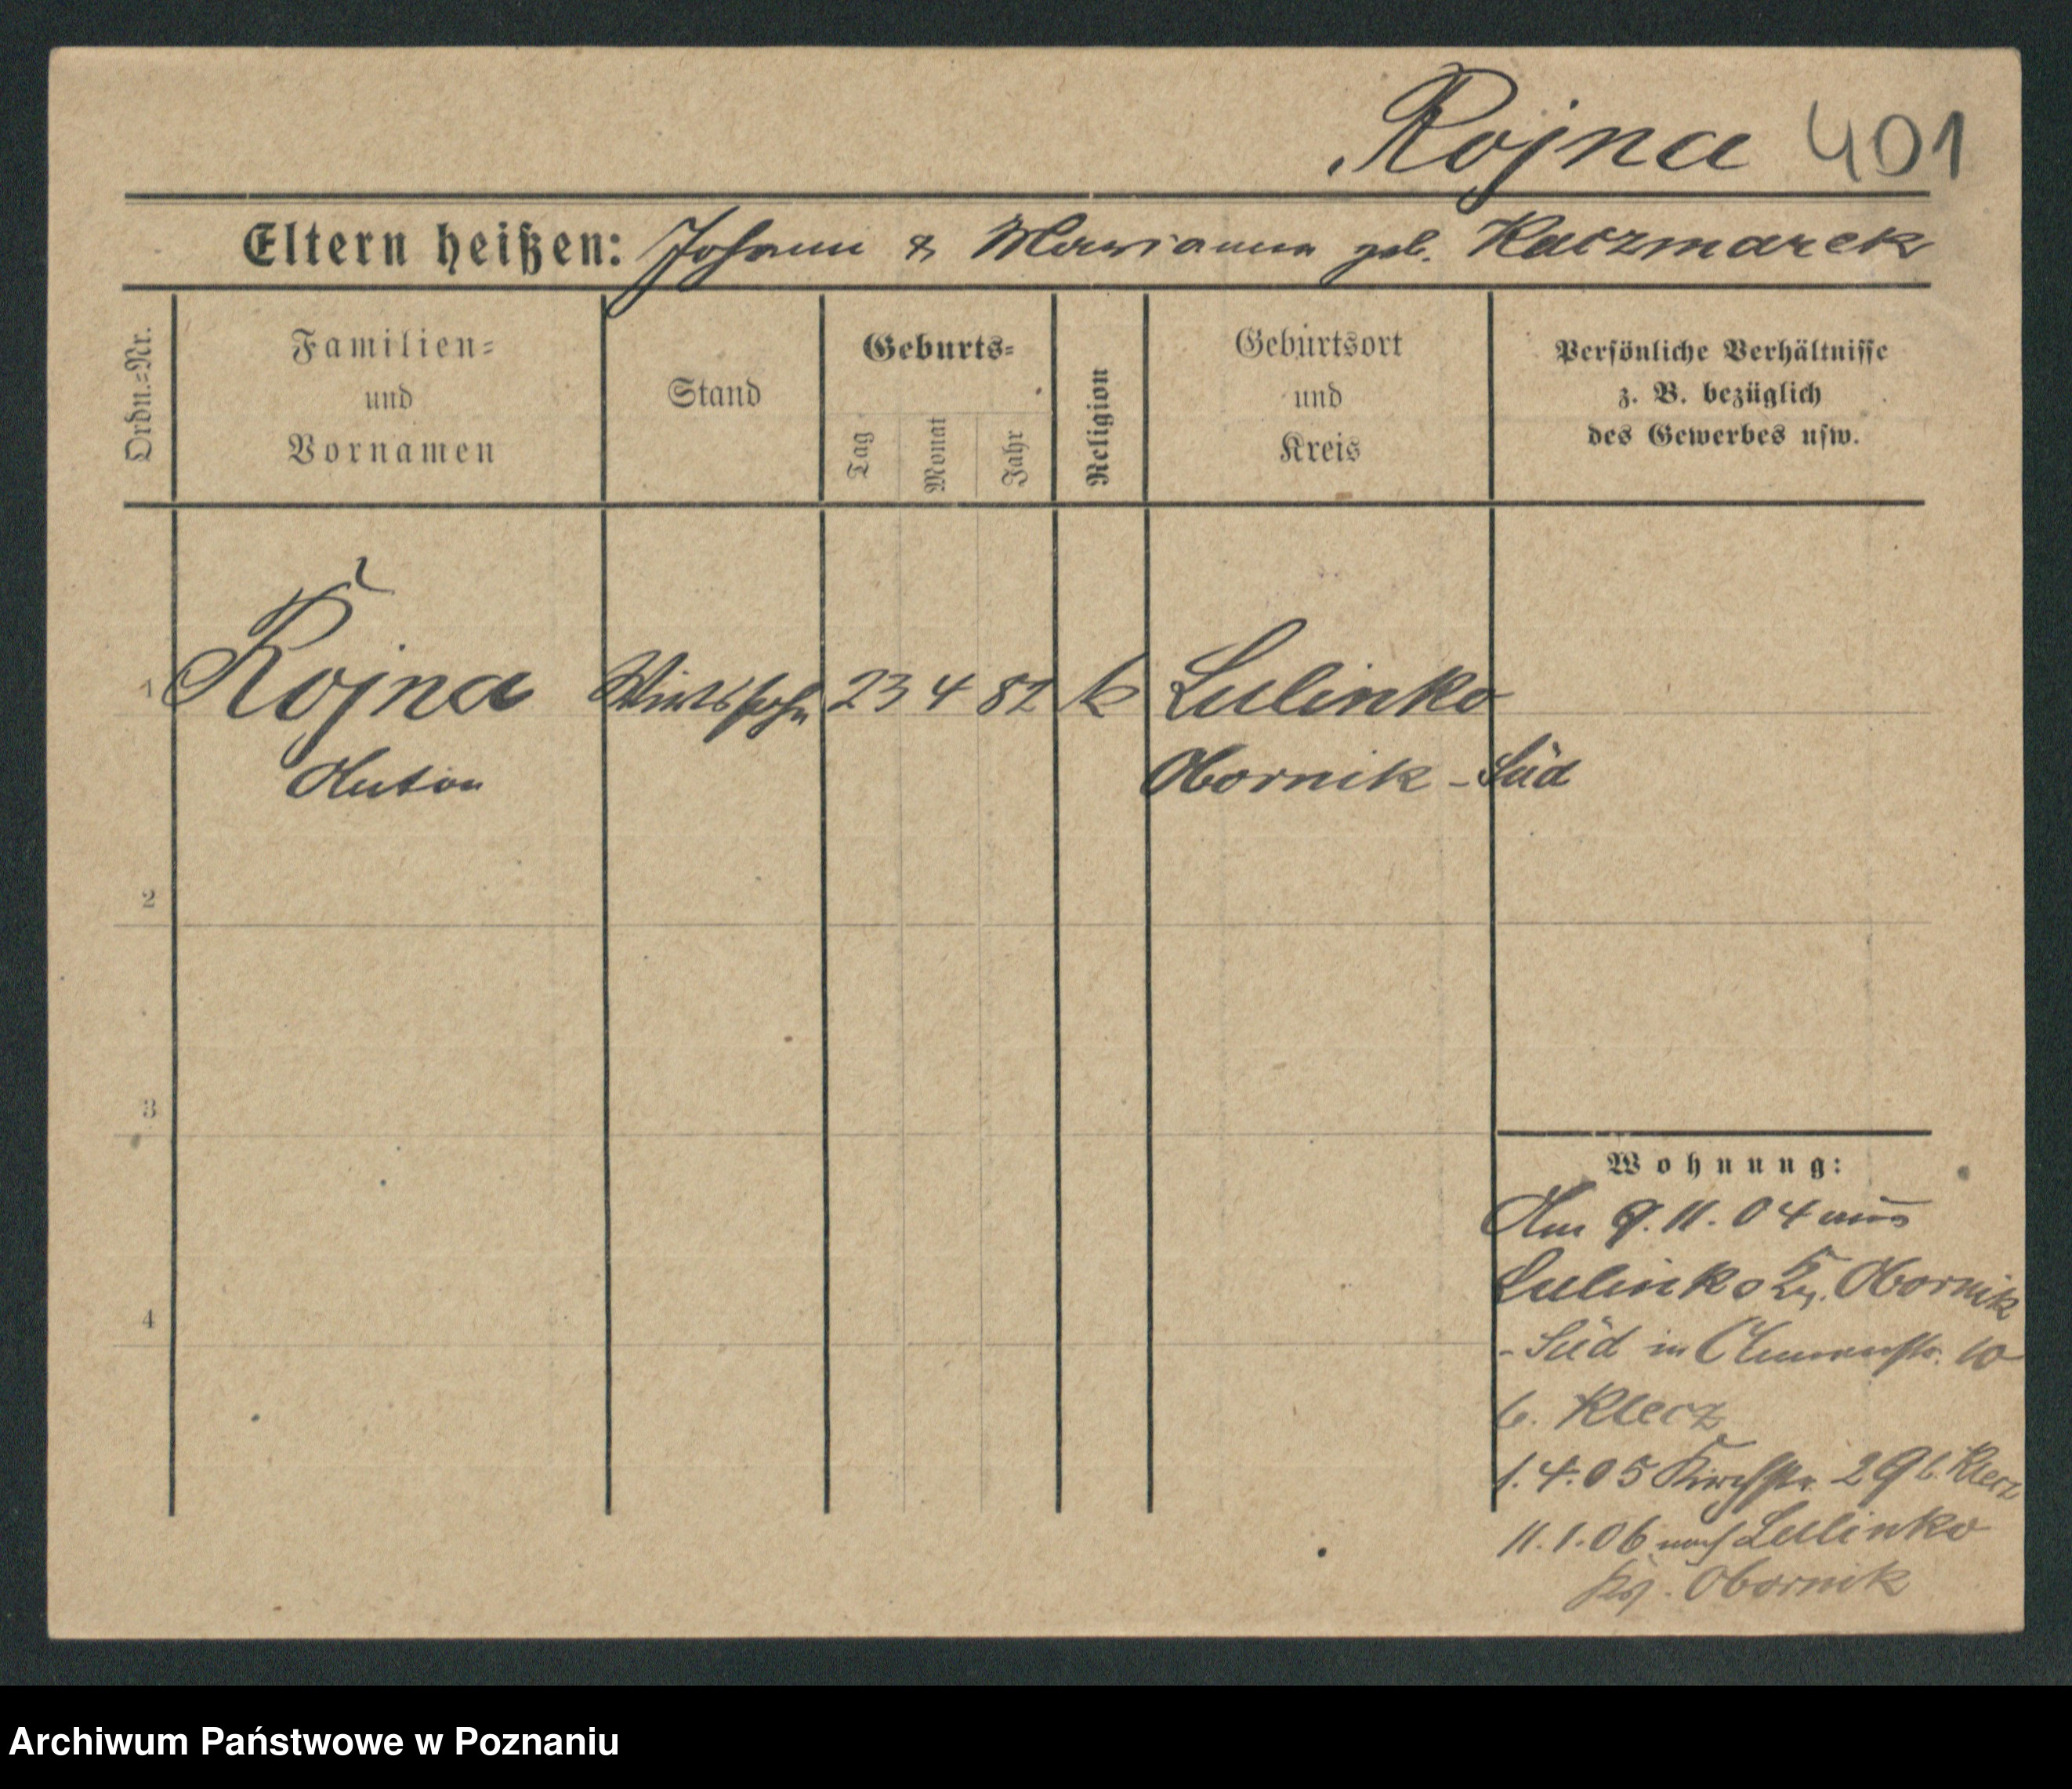 Rojna 401
Eltern heißen: Johann & Marianna geb. Kaczmarek
Ordn.=Nr.
Familien=
und
Vornamen
Stand
Geburts=
Tag
Monat
Jahr
Religion
Geburtsort
und
Kreis
Persönliche Verhältnisse
z. B. bezüglich
des Gewerbes usw.
1 Rojna Wirtssohn 23 4 82 k Lulinko
Anton Obornik - Süd
2
3
4
Wohnung:
Am 9.11.04 aus
Lulinko Kr. Obornik
- Süd in 10
b. Klecz
1.4.05 Kirchstr. 29 b. Klecz
11.1.06 nach Lulinko
Kr. Obornik
Archiwum Państwowe w Poznaniu